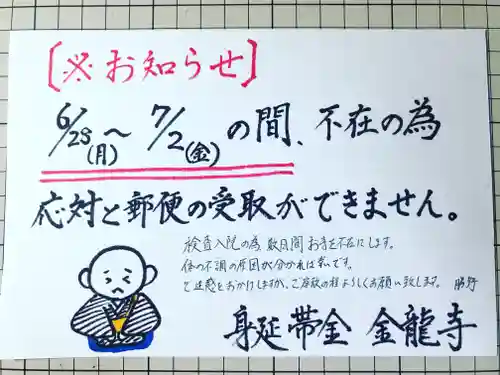 [※お知らせ]
6/28(月)〜7/2(金)の間、不在の為
応対と郵便の受取ができません。
検査入院の為 数日間 お寺を不在にします。
体の不調の原因が分かれば幸いです。
ご迷惑をおかけしますが、ご容赦の程よろしくお願い致します。
身延帯金 金龍寺